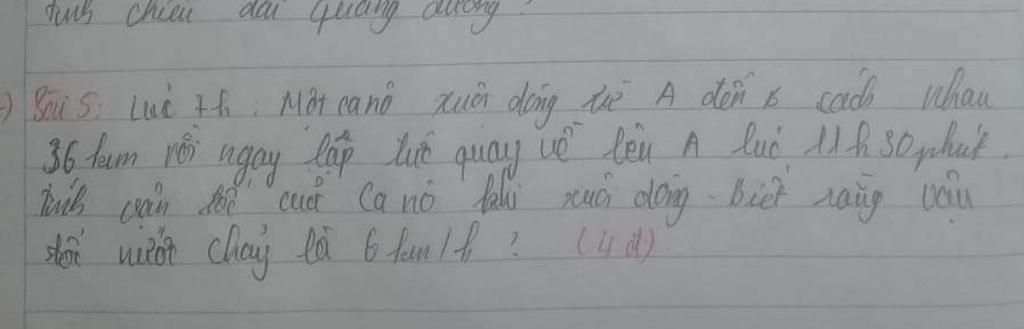 tính chiều dài quãng đường?
Bài 5: Lúc 7h. Một ca nô xuôi dòng từ A đến B cách nhau
36 km rồi ngay lập tức quay về bến A lúc 11h30 phút.
tính vận tốc của Ca nô khi xuôi dòng. Biết rằng vận
tốc nước chảy là 6 km/h? (4đ)